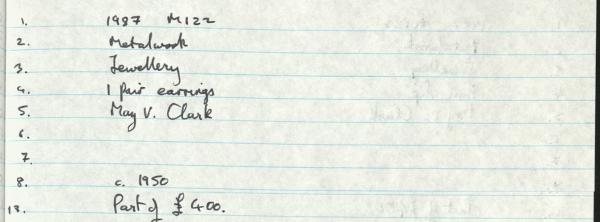 1. 1987 M122
2. Metalwork
3. Jewellery
4. 1 pair earrings
5. May V. Clark
6.
7.
8. c. 1950
13. Part of £400.